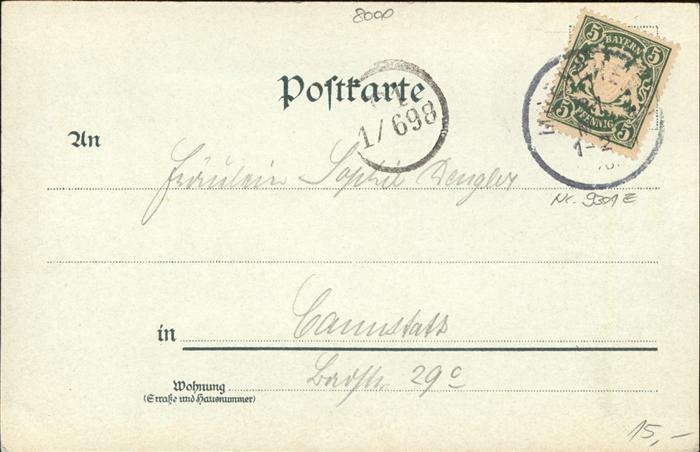 8000
5 BAYERN 5
5 PFENNIG 5
Postkarte
1/698
An
Fräulein Sophie Dengler
Nr. 9301 E
in Cannstatt
Wohnung
(Straße und Hausnummer)
Badstr. 29c
15,-